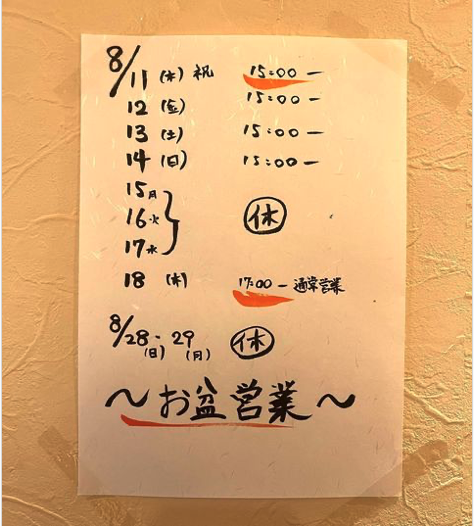 8/11(木)祝 15:00ー
12(金) 15:00ー
13(土) 15:00ー
14(日) 15:00ー
15月
16火 休
17水
18(木) 17:00ー通常営業
8/28(日)-29(月) 休
〜お盆営業〜